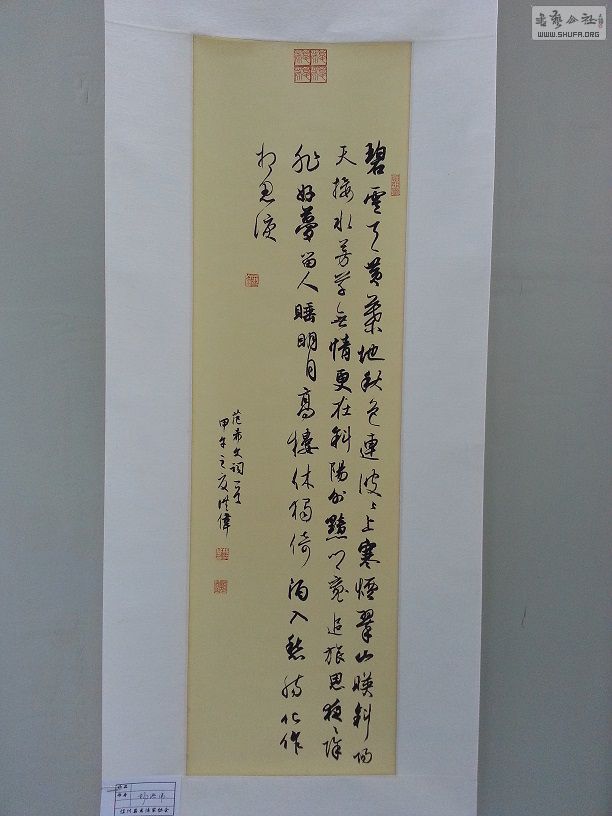 碧雲天黄葉地秋色連波〻上寒煙翠山暎斜陽
天接水芳草無情更在斜陽外黯鄉魂追旅思夜除
非好夢留人睡明月高樓休獨倚酒入愁腸化作
相思淚
范希文詞一首
甲午之夏洪偉
书艺公社
WWW.SHUFA.ORG